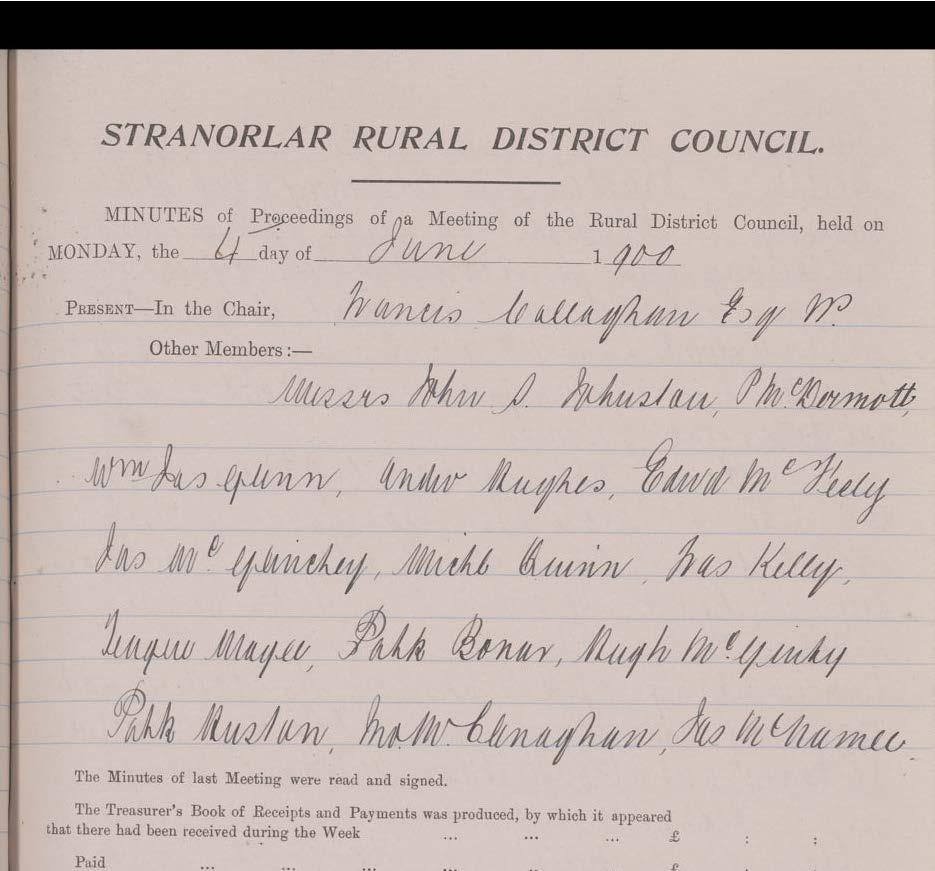 STRANORLAR RURAL DISTRICT COUNCIL.
MINUTES of Proceedings of a Meeting of the Rural District Council, held on
MONDAY, the 4 day of June 1900
PRESENT—In the Chair, Francis Callaghan Esq
Other Members:—
Messrs John S. Johnston, P McDermott,
Wm Jas Glinn, Andw Hughes, Edwd McFeely
Jas McGlinchey, Michl Quinn, Fras Kelly,
Teague Magee, Patk Bonar, Hugh McGinty
Patk Ruston, Jno. Mc.Clanaghan, Jas McNamee.
The Minutes of last Meeting were read and signed.
The Treasurer's Book of Receipts and Payments was produced, by which it appeared
that there had been received during the Week ... ... ... £ : :
Paid ... ... ... ... ... £